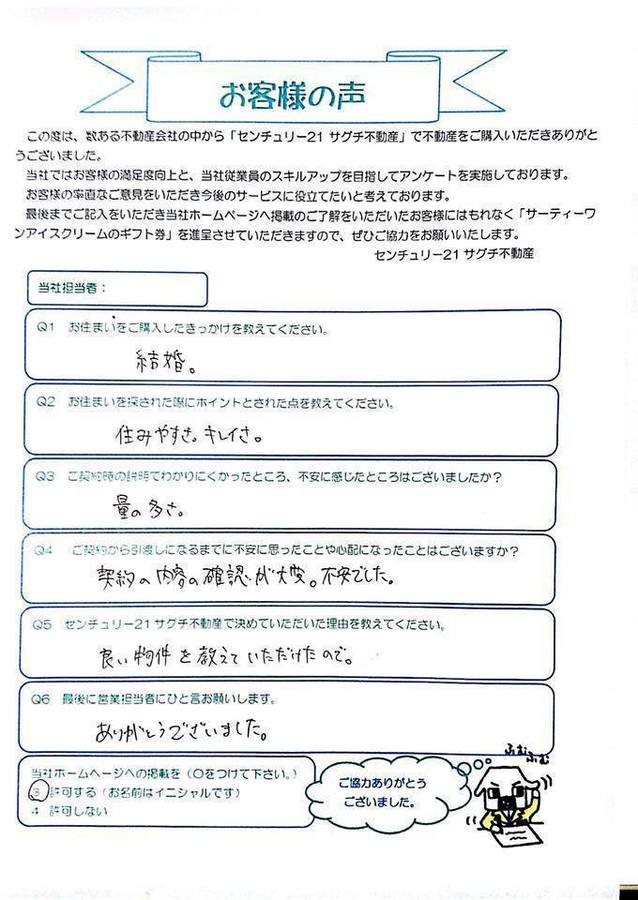 お客様の声
この度は、数ある不動産会社の中から「センチュリー21 サグチ不動産」で不動産をご購入いただきありがと
うございました。
当社ではお客様の満足度向上と、当社従業員のスキルアップを目指してアンケートを実施しております。
お客様の率直なご意見をいただき今後のサービスに役立てたいと考えております。
最後までご記入をいただき当社ホームページへ掲載のご了解をいただいたお客様にはもれなく「サーティーワ
ンアイスクリームのギフト券」を進呈させていただきますので、ぜひご協力をお願いいたします。
センチュリー21 サグチ不動産
当社担当者：
Q1 お住まいをご購入したきっかけを教えてください。
結婚。
Q2 お住まいを探された際にポイントとされた点を教えてください。
住みやすさ。キレイさ。
Q3 ご契約時の説明でわかりにくかったところ、不安に感じたところはございましたか？
量の多さ。
Q4 ご契約から引渡しになるまでに不安に思ったことや心配になったことはございますか？
契約の内容の確認が大変。不安でした。
Q5 センチュリー21 サグチ不動産で決めていただいた理由を教えてください。
良い物件を教えていただけたので。
Q6 最後に営業担当者にひと言お願いします。
ありがとうございました。
当社ホームページへの掲載を（〇をつけて下さい。）
3 許可する（お名前はイニシャルです）
4 許可しない
ご協力ありがとう
ございました。
ふむふむ